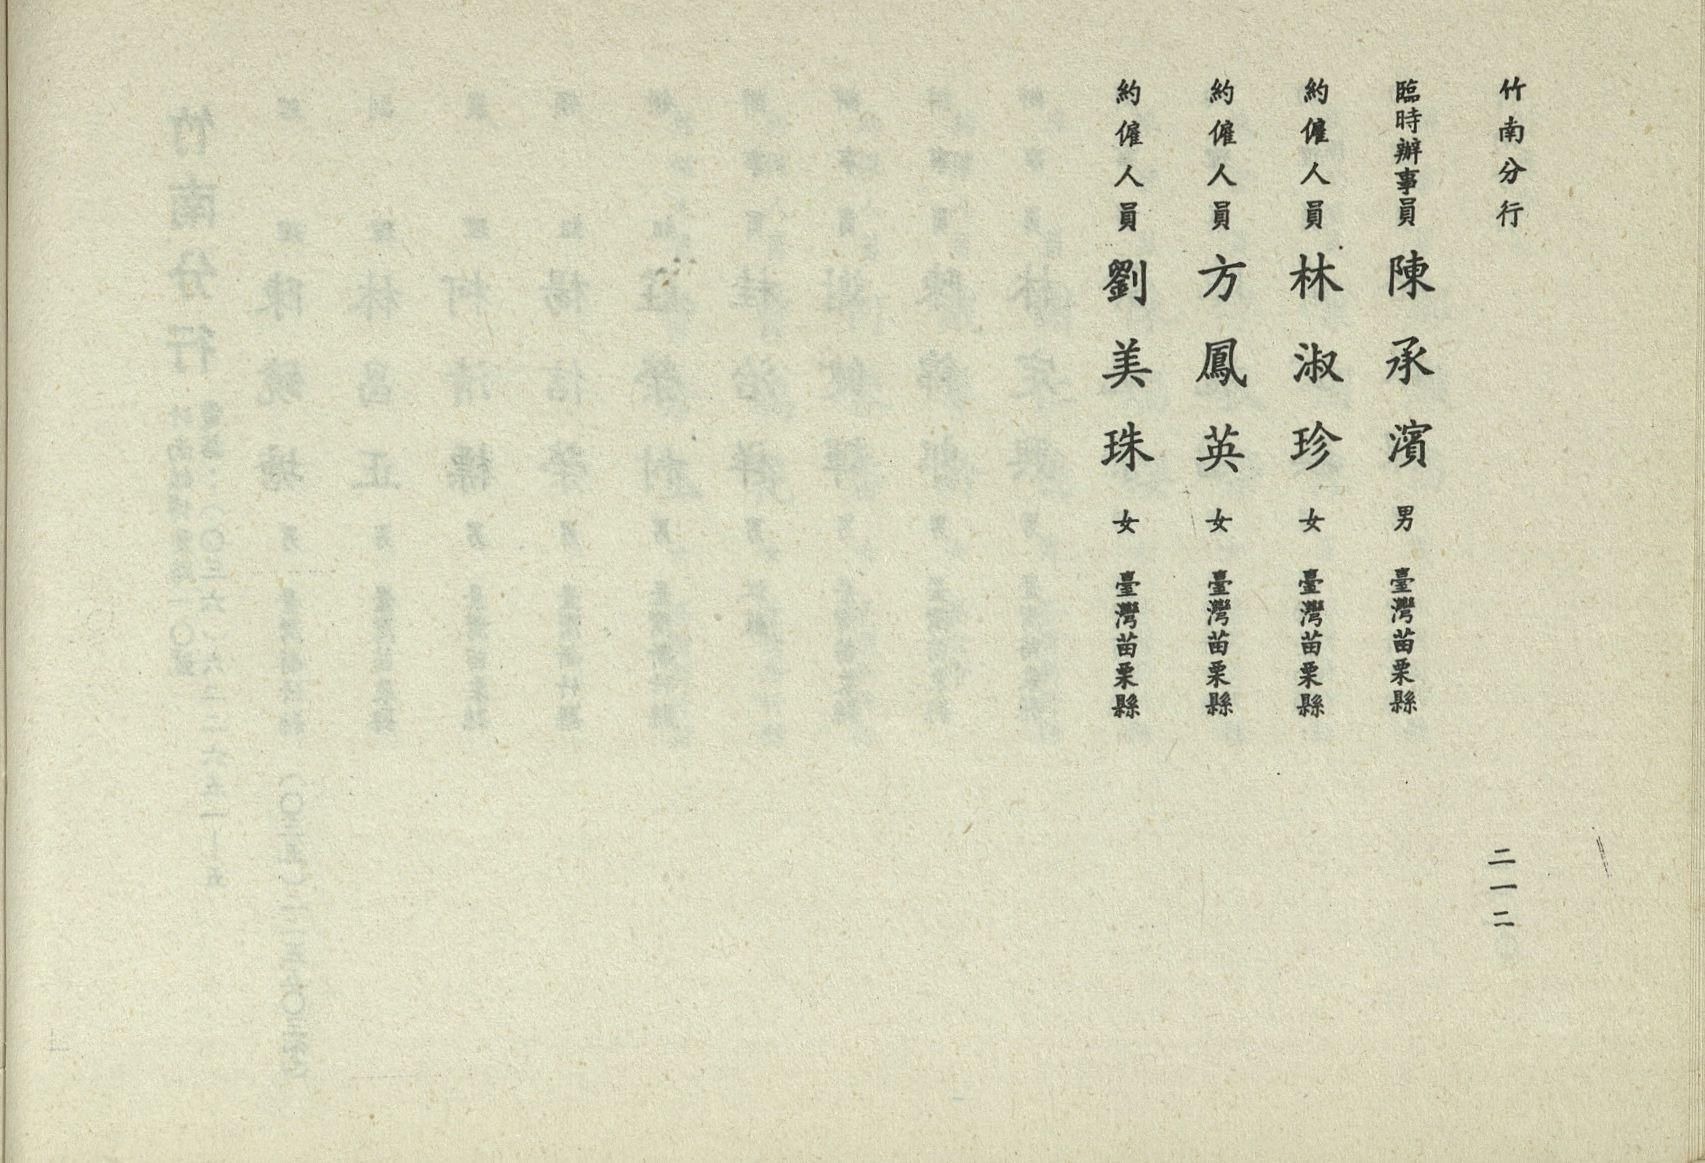 竹南分行
二一二
臨時辦事員 陳承濱 男 臺灣苗栗縣
約僱人員 林淑珍 女 臺灣苗栗縣
約僱人員 方鳳英 女 臺灣苗栗縣
約僱人員 劉美珠 女 臺灣苗栗縣